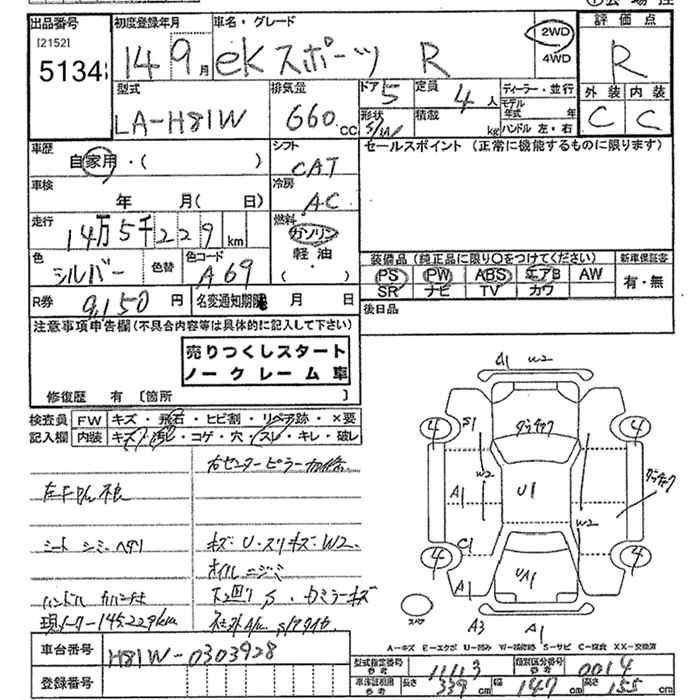 出品番号
[2152]
5134
初度登録年月
14 9月
車名・グレード
eKスポーツ R
2WD
4WD
評価点
R
外装 内装
C C
型式
LA-H81W
排気量
660 cc
ドア
5
形状
S/W
定員
4人
積載
kg
ディーラー・並行
モデル年式 年
ハンドル 左・右
車歴
自家用・( )
シフト
CAT
セールスポイント(正常に機能するものに限ります)
車検
年 月( 日)
冷房
AC
走行
14万5千229 km
燃料
ガソリン
軽油
( )
色
シルバー
色替
色コード
A69
装備品(純正品に限り○をつけてください)
新車保証書
PS PW ABS エアB AW
SR ナビ TV カワ
有・無
R券
9,150円
名変通知期限 月 日
後日品
注意事項申告欄(不具合内容等は具体的に記入して下さい)
売りつくしスタート
ノークレーム車
修復歴 有〔箇所 〕
検査員
記入欄
FW キズ・飛石・ヒビ割・リペア跡・×要
内装 キズ・汚レ・コゲ・穴・スレ・キレ・破レ
右センターピラー
シート シミ ヘタリ
キズ・U・スリキズ・W2.
オイルニジミ
下廻りS
現メーター145,229km
車台番号
H81W-0303928
登録番号
A1 W2
4 S1 4
W2
A1 U1
W2
C1
4 UA1 4
A1
A3 A1
スペア
A=キズ E=エクボ U=凹み W=補修跡 S=サビ C=腐食 XX=交換済
型式指定番号
参考
11113
類別区分番号
参考
0014
車体証明書
参考
長さ 339 cm 幅 147 cm 高さ 155 cm